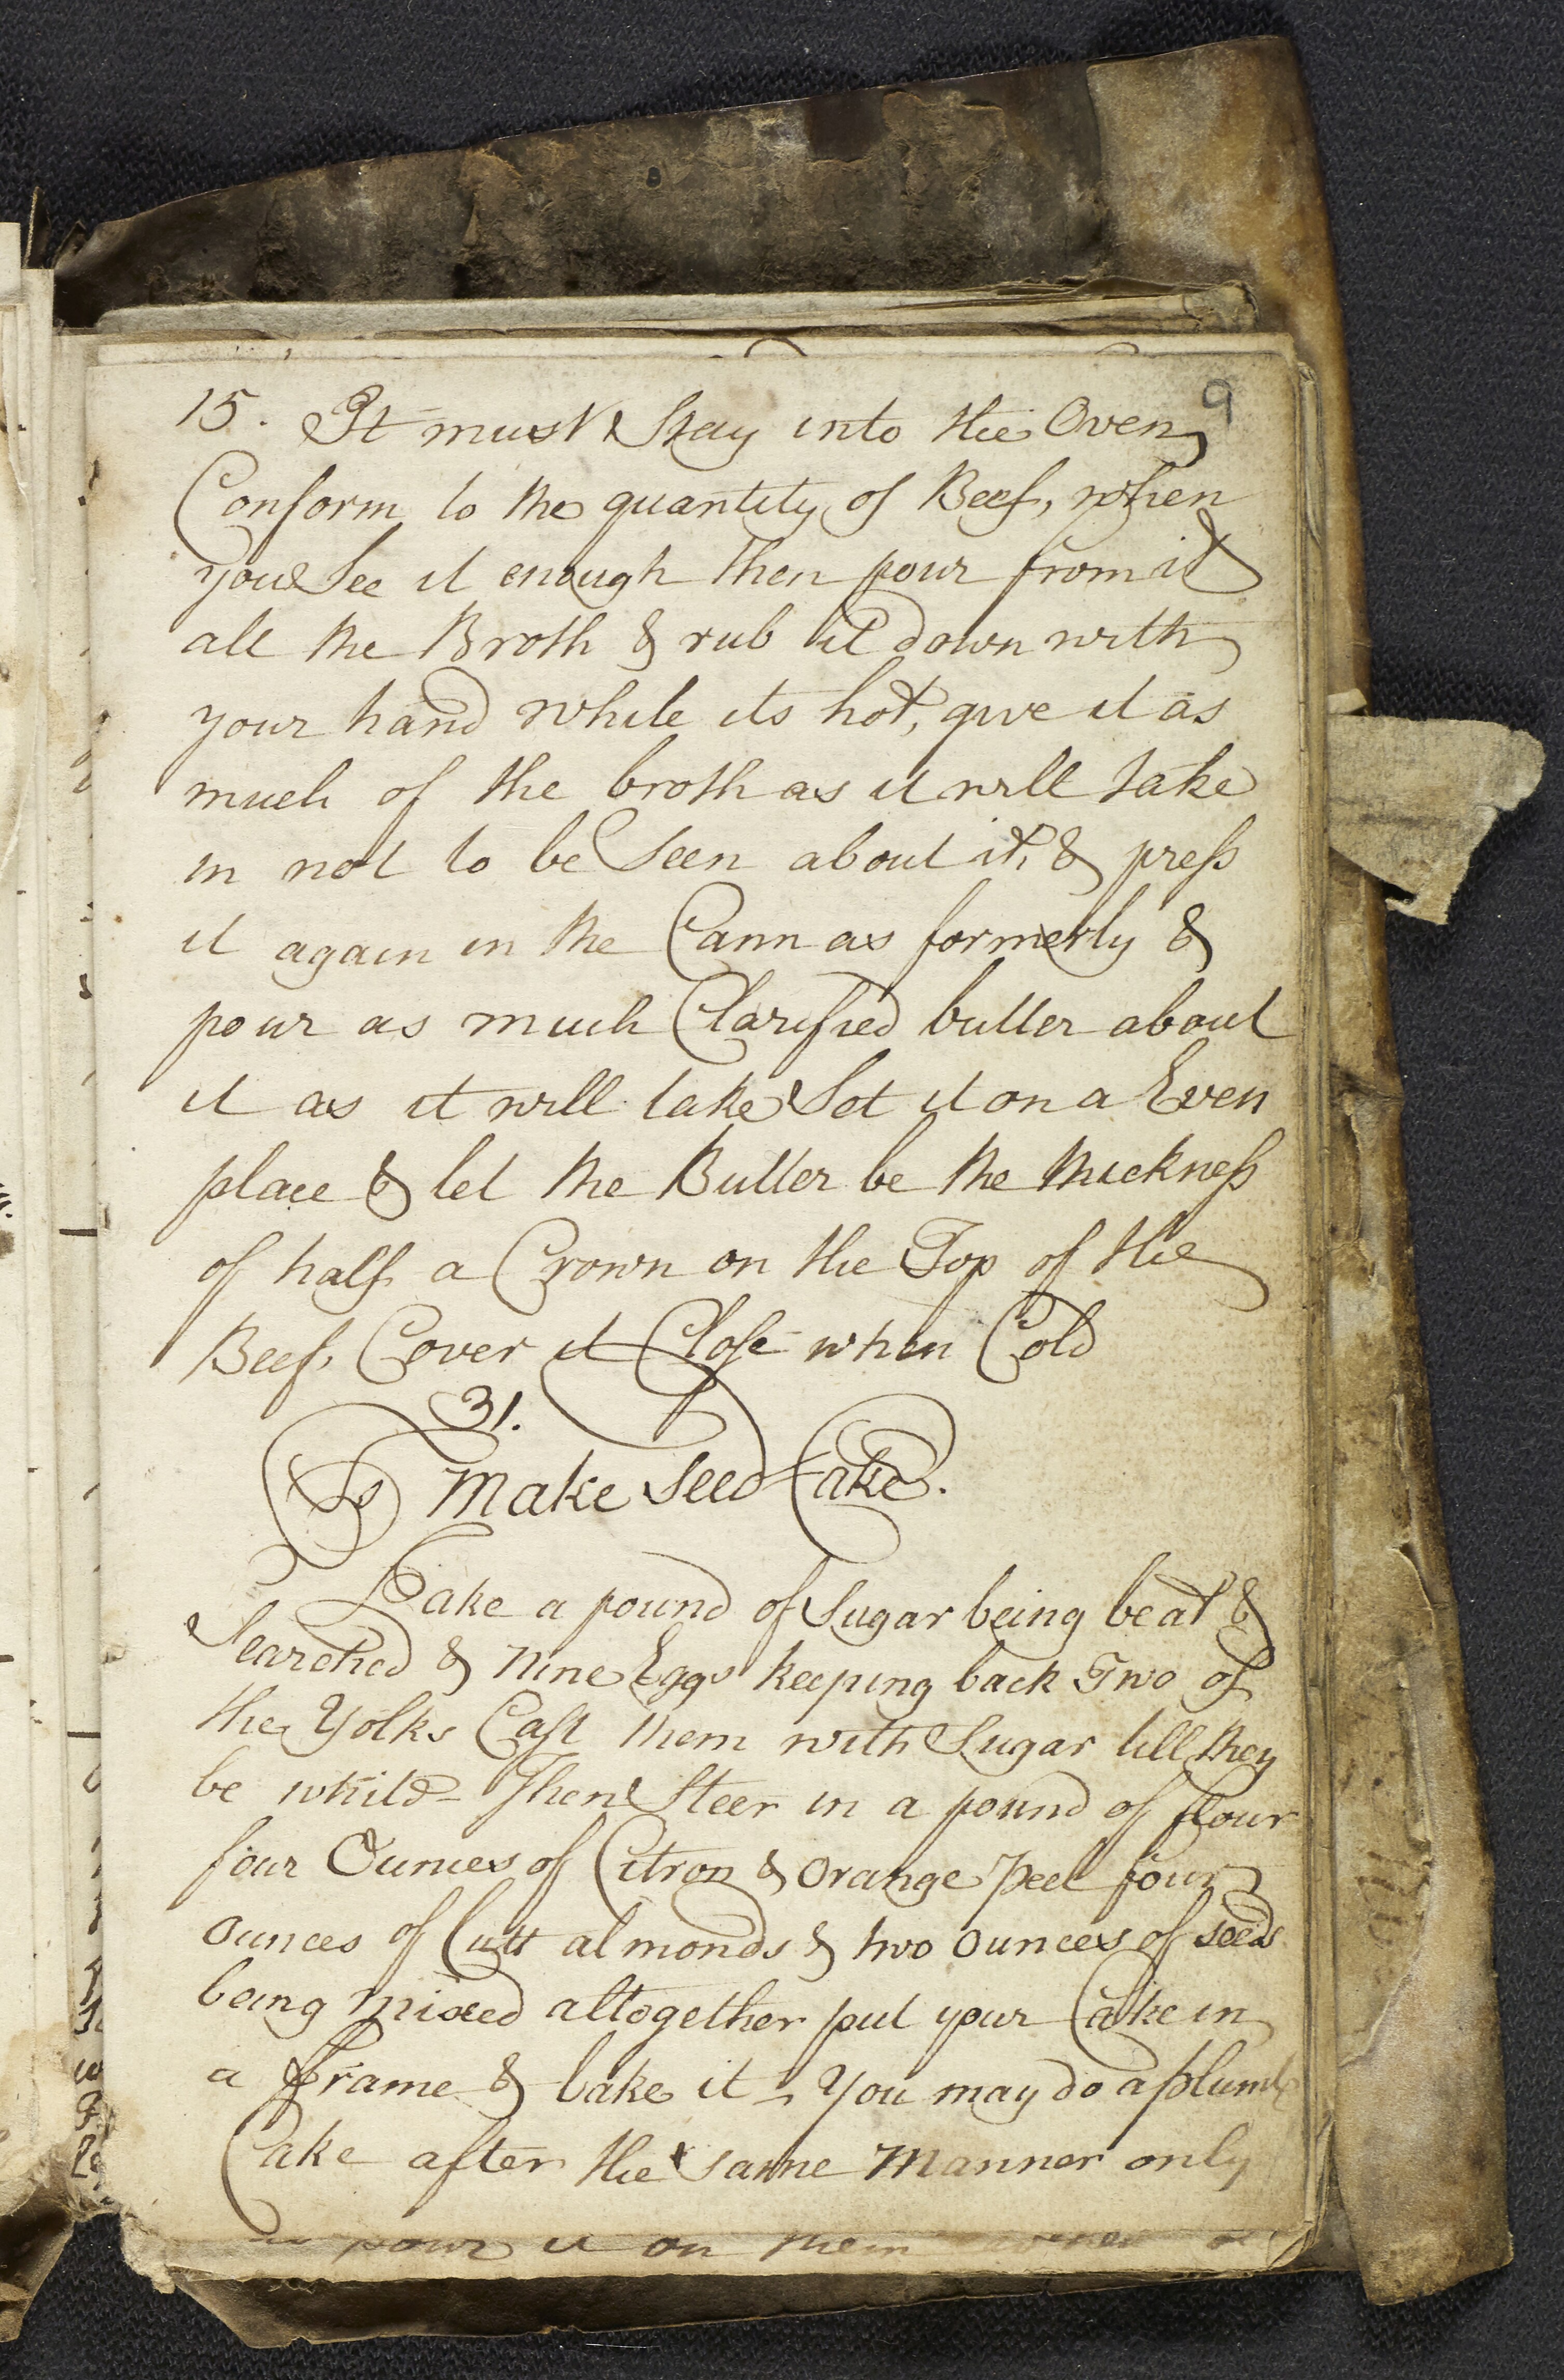 9
15. It must Stay into the Oven
Conform to the quantity of Beef, when
you See it enough then pour from it
all the Broth & rub it down with
your hand while its hot, give it as
much of the broth as it will take
in not to be Seen about it, & preſs
it again in the Cann as formerly &
pour as much Clarified butter about
it as it will take Set it on a Even
place & let the Butter be the thickneſs
of half a Crown on the Top of the
Beef, Cover it Cloſe when Cold
31.
To Make Seed Cake.
Take a pound of Sugar being beat &
Searched & Nine Eggs keeping back Two of
the Yolks Caſt them with Sugar till they
be white - Then Steer in a pound of flour
four Ounces of Citron & Orange Peel four
Ounces of Cutt almonds & two Ounces of seeds
being Mixed altogether put your Cake in
a frame & bake it - You may do a plumb
Cake after the same Manner only
pour it on them